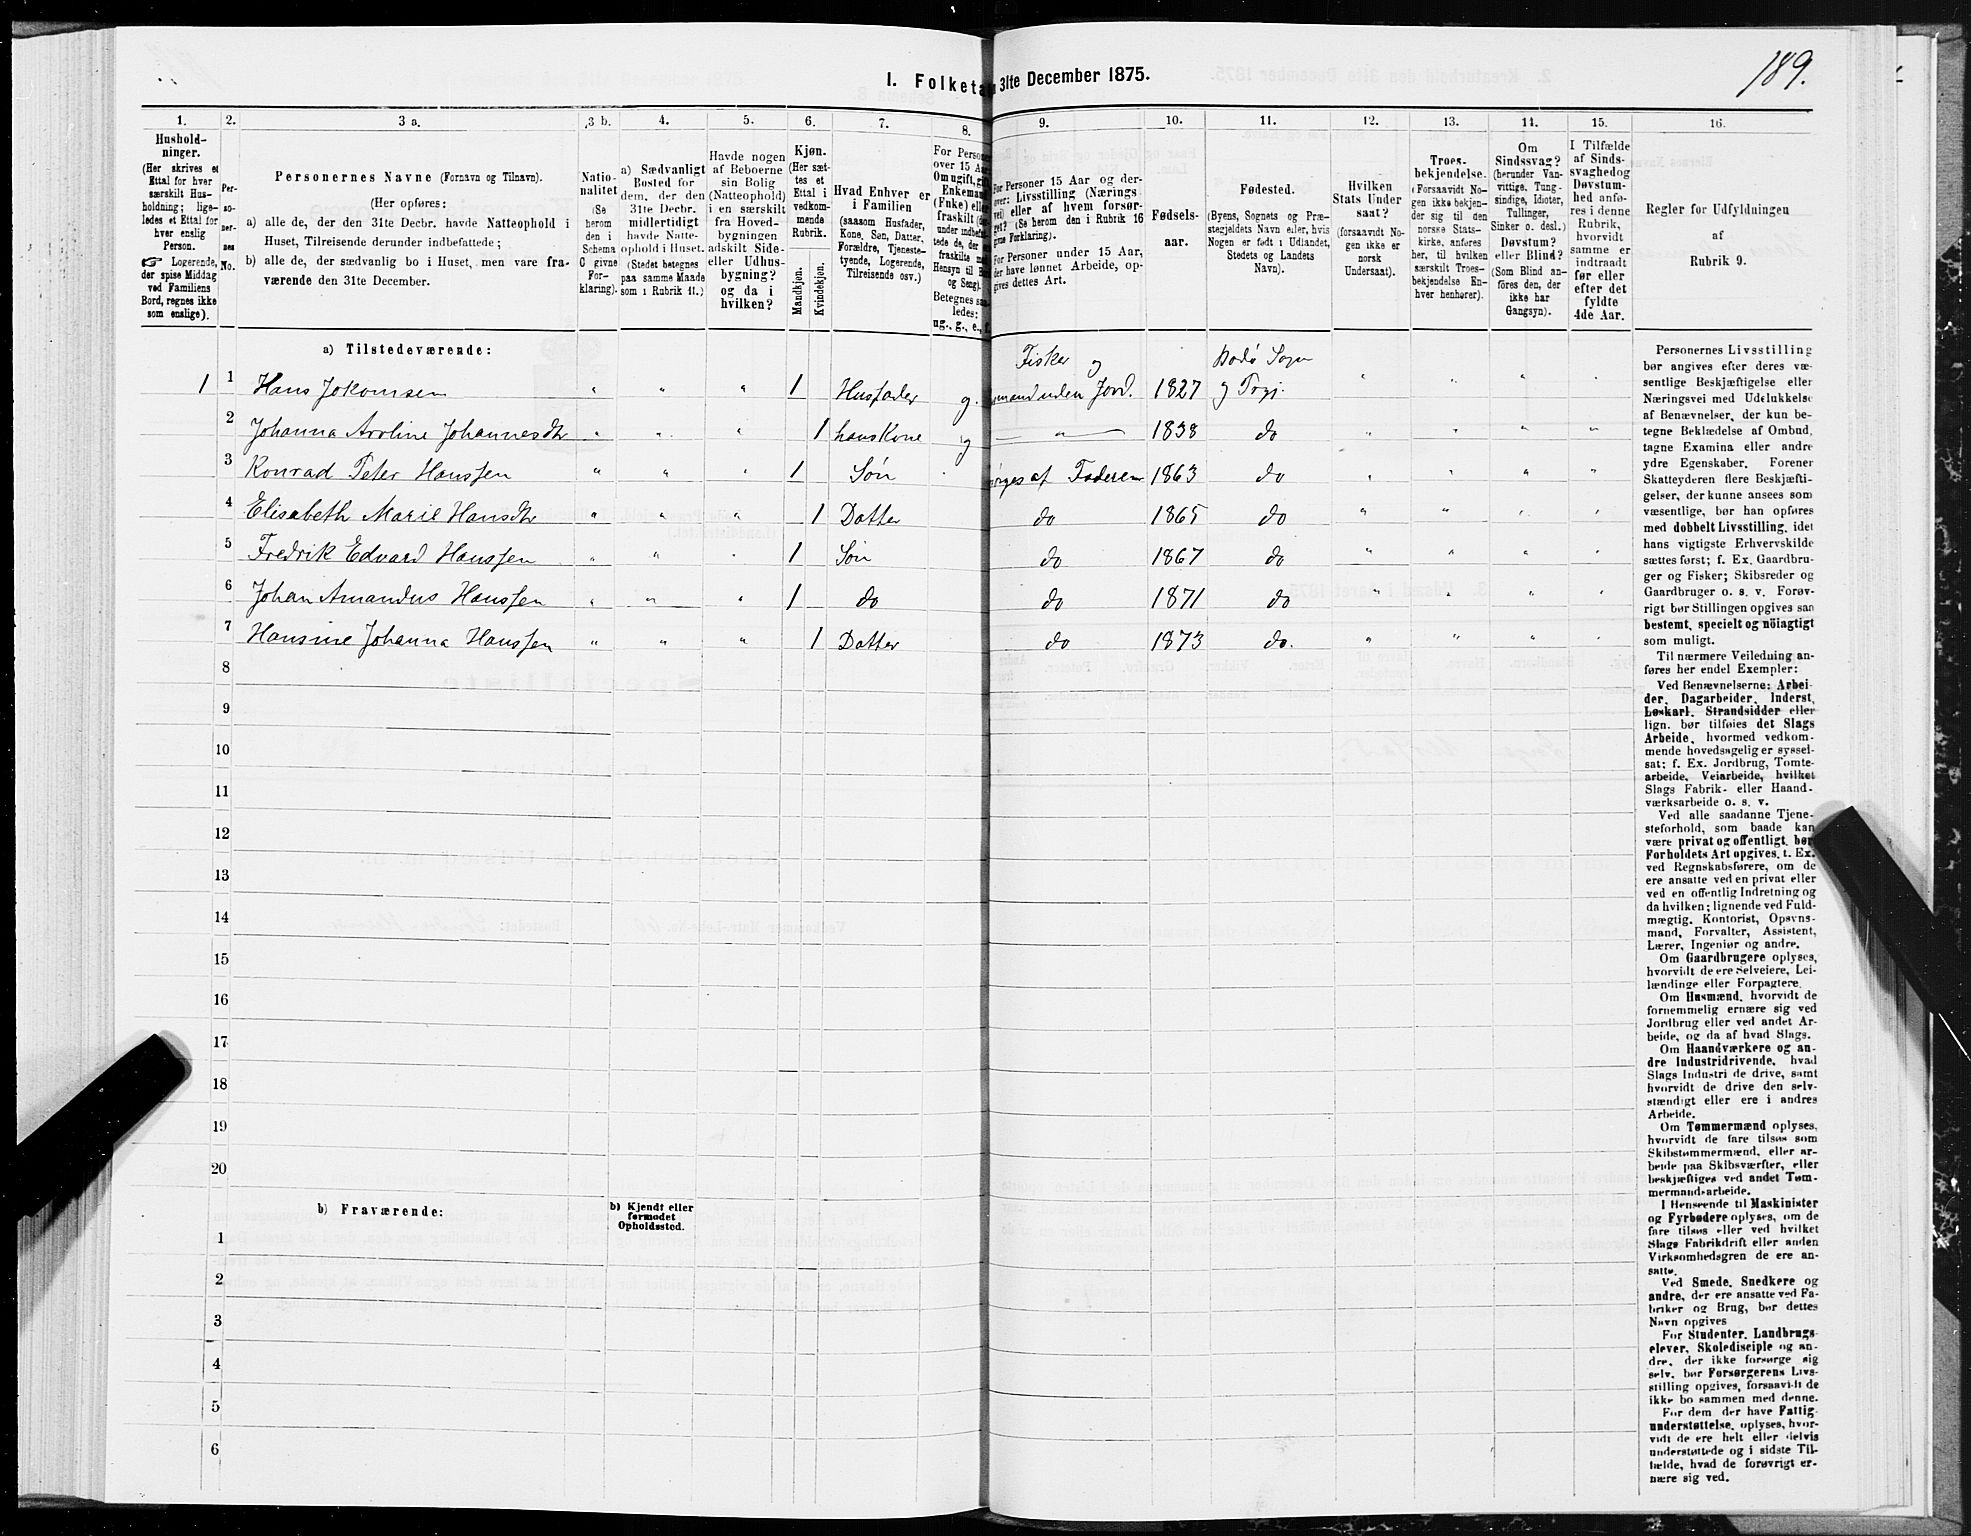 189.
I. Folketa 31te December 1875.
1. 2. 3 a. 3 b. 4. 5. 6. 7. 8. 9. 10. 11. 12. 13. 14. 15. 16.
Hushold-
ninger.
(Her skrives et
Ettal for hver
særskilt Hus-
holdning; lige-
ledes et Ettal for
hver enslig
Person.
☞ Logerende,
der spise Middag
ved Familiens
Bord, regnes ikke
som enslige).
Per-
so-
ner-
nes
No.
Personernes Navne (Fornavn og Tilnavn).
(Her opføres:
a) alle de, der den 31te Decbr. havde Natteophold i
Huset, Tilreisende derunder indbefattede;
b) alle de, der sædvanlig bo i Huset, men vare fra-
værende den 31te December.
Natio-
nalitet
(Se
herom
den i
Schema
C givne
For-
klaring).
a) Sædvanligt
Bosted for
dem, der den
31te Decbr.
midlertidigt
havde Natte-
ophold i Huset.
(Stedet betegnes
paa samme Maade
som i Rubrik 11.)
Havde nogen
af Beboerne
sin Bolig
(Natteophold)
i en særskilt
fra Hoved-
bygningen
adskilt Side-
eller Udhus-
bygning?
og da i
hvilken?
Kjøn.
(Her sæt-
tes et
Ettal i
vedkom-
mende
Rubrik.
Mandkjøn.
Kvindekjøn.
Hvad Enhver er
i Familien
(saasom Husfader,
Kone, Søn, Datter,
Forældre, Tjeneste-
tyende, Logerende,
Tilreisende osv.)
For Persone
over 15 Aa
Om ugift, gift,
Enkemand
(Enke) eller
fraskilt
Betegnes saa-
ledes:
ug., g., e., f.
For Personer 15 Aar og der-
over: Livsstilling (Nærings
vei) eller af hvem forsør-
get? (Se herom den i Rubrik 16
givne Forklaring).
For Personer under 15 Aar,
der have lønnet Arbeide, op-
gives dettes Art.
Fødsels-
aar.
Fødested.
(Byens, Sognets og Præ-
stegjeldets Navn eller, hvis
Nogen er født i Udlandet,
Stedets og Landets
Navn).
Hvilken
Stats Under
saat?
(forsaavidt No-
gen ikke er
norsk
Undersaat).
Troes-
bekjendelse.
(Forsaavidt No-
gen ikke bekjen-
der sig til den
norske Stats-
kirke, anføres
her, til hvilken
særskilt Troes-
bekjendelse En-
hver henhører).
Om
Sindssvag?
(herunder Van-
vittige, Tung-
sindige, Idioter,
Tullinger,
Sinker o. desl.)
Døvstum?
eller Blind?
(Som Blind an-
føres den, der
ikke har
Gangsyn).
I Tilfælde
af Sinds-
svaghed og
Døvstum-
hed anfø-
res i denne
Rubrik,
hvorvidt
samme er
indtraadt
før eller
efter det
fyldte
4de Aar.
Regler for Udfyldningen
af
Rubrik 9.
a) Tilstedeværende:
Fisker og Bodø Sogn
1 1 Hans Jokomsen " " " 1 Husfader g. mand uden Jord. 1827 g Prgj. " " " "
2 Johanna Aroline Johannesdtr " " " 1 hans Kone g " 1838 do " " " "
3 Konrad Peter Hanssen " " " 1 Søn af Faderen 1863 do " " " "
4 Elisabeth Marie Hansdtr " " " 1 Datter do 1865 do " " " "
5 Fredrik Edvard Hanssen " " " 1 Søn do 1867 do " " " "
6 Johan Amandus Hanssen " " " 1 do do 1871 do " " " "
7 Hansine Johanna Hanssen " " " 1 Datter do 1873 do. " " " "
8
9
10
11
12
13
14
15
16
17
18
19
20
b) Fraværende:
b) Kjendt eller
formodet
Opholdssted.
1
2
3
4
5
6
Personernes Livsstilling
bør angives efter deres væ-
sentlige Beskjæftigelse eller
Næringsvei med Udelukkelse
af Benævnelser, der kun be-
tegne Beklædelse af Ombud,
tagne Examina eller andre
ydre Egenskaber. Forener
Skatteyderen flere Beskjæfti-
gelser, der kunne ansees som
væsentlige, bør han opføres
med dobbelt Livsstilling, idet
hans vigtigste Erhvervskilde
sættes først; f. Ex. Gaardbru-
ger og Fisker; Skibsreder og
Gaardbruger o. s. v. Forøv-
rigt bør Stillingen opgives saa
bestemt, specielt og nöiagtigt
som muligt.
Til nærmere Veiledning an-
føres her endel Exempler:
Ved Benævnelserne: Arbei-
der, Dagarbeider, Inderst,
Løskarl, Strandsidder eller
lign. bør tilføies det Slags
Arbeide, hvormed vedkom-
mende hovedsagelig er syssel-
sat; f. Ex. Jordbrug, Tomte-
arbeide, Veiarbeide, hvilket
Slags Fabrik- eller Haand-
værksarbeide o. s. v.
Ved alle saadanne Tjene-
steforhold, som baade kan
være privat og offentligt, bør
Forholdets Art opgives, t. Ex.
ved Regnskabsførere, om de
ere ansatte ved en privat eller
ved en offentlig Indretning og
da hvilken; lignende ved Fuld-
mægtig, Kontorist, Opsyns-
mand, Forvalter, Assistent,
Lærer, Ingeniør og andre.
Om Gaardbrugere oplyses,
hvorvidt de ere Selveiere, Lei-
lændinge eller Forpagtere.
Om Husmænd, hvorvidt de
fornemmelig ernære sig ved
Jordbrug eller ved andet Ar-
beide, og da af hvad Slags.
Om Haandværkere og an-
dre Industridrivende, hvad
Slags Industri de drive, samt
hvorvidt de drive den selv-
stændigt eller ere i andres
Arbeide.
Om Tømmermænd oplyses,
hvorvidt de fare tilsøs som
Skibstømmermænd, eller ar-
beide paa Skibsværfter, eller
beskjæftiges ved andet Tøm-
mermandsarbeide.
I Henseende til Maskinister
og Fyrbødere oplyses, om de
fare tilsøs eller ved hvilket
Slags Fabrikdrift eller anden
Virksomhedsgren de ere an-
satte.
Ved Smede, Snedkere og
andre, der ere ansatte ved Fa-
briker og Brug, bør dettes
Navn opgives
For Studenter, Landbrugs-
elever, Skoledisciple og an-
dre, der ikke forsørge sig
selv, bør Forsørgerens Livs-
stilling opgives, forsaavidt de
ikke bo sammen med denne.
For dem der have Fattig-
understøttelse, oplyses, hvor-
vidt de ere helt eller delvis
understøttede og i sidste Til-
fælde, hvad de forøvrigt er-
nære sig ved.